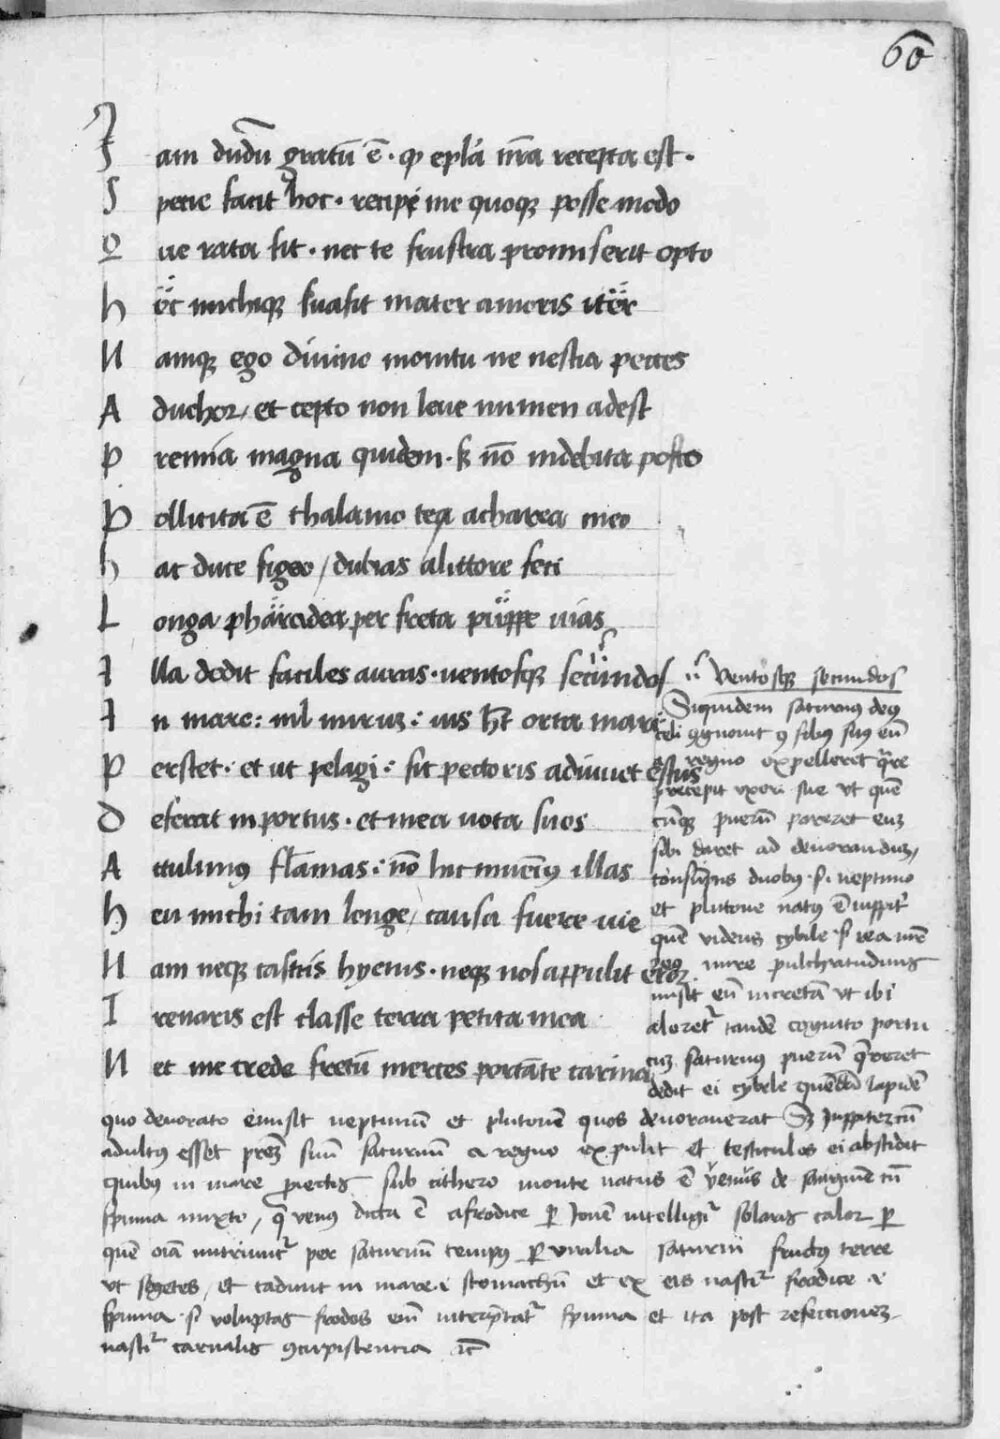 60
Iam dudū gratū ē · ꝙ epl̄a nr̄a recepta est ·
Spem facit hoc · recipi me quoqꝫ posse modo
Que rata sit · nec te frustra promiserit opto
hoc michiqꝫ suasit mater amoris iter
Namqꝫ ego divino monitu ne nescia pecces
Advehor / et cepto non leve numen adest
Premia magna quidem · sꝫ nō indebita posco
Pollicita ē thalamo te cytharea meo
hac duce sigeo / dubias a littore feci
Longa pharecleas per freta puppe vias
Illa dedit faciles auras · ventosqꝫ secundos
In mare : nil mirum : ius hꝫ orta mari
Perstet · et ut pelagi : sic pectoris adiuvet estus
Deferat in portus · et mea vota suos
Attulimꝰ flāmas : nō hic invenimꝰ illas
hee michi tam longe / causa fuere vie
Nam neqꝫ tristis hyems · neqꝫ nos appulit error
Tenaris est classe terra petita mea
Nec me crede fretū merces portāte carina
Ventosqꝫ secundos
Siquidem saturnus deꝰ
celi ꝯgnovit ꝙ filius suꝰ eū
a regno expelleret qͣre
precepit uxori sue ut quē
cūqꝫ puerū pareret euꝫ
sibi daret ad devoranduꝫ /
consūptis duobꝰ · s · neptuno
et plutone natꝰ ē iuppiꝉ
quē videns cybile · s · rea mr̄e
mire pulchritudinis
misit eū in cretā ut ibi
aleretꝉ tandē cognito partu
cuꝫ saturnꝰ puerū q̄reret
dedit ei cybele quēdā lapidē
quo devorato emisit neptunū et plutonē quos devoraverat Sꝫ Juppiter cū
adultꝰ esset prēꝫ suū saturnū a regno expulit et testiculos ei abscidit
quibus in mare proiectis sub cithero monte natus ē venus de sanguine cū
spuma mixto / q̄ venus dicta ē afrodice ꝑ Jovem intelligiꝉ solaris calor ꝑ
quē oīa nutriunꝉ per saturnū tempꝰ ꝑ virilia saturni fructꝰ terre
ut segetes / et cadunt in mare · i · stomachū et ex eis nasciꝉ frodice · i ·
spuma · s · voluptas frodos eīn interp̄tatꝉ spuma et ita post refectionem
nasciꝉ carnalis ꝯcupiscencia